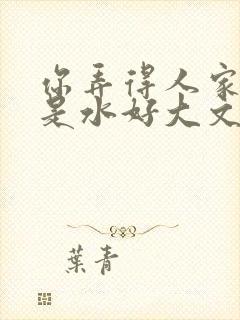 你弄得人家
是水好大文
葉青